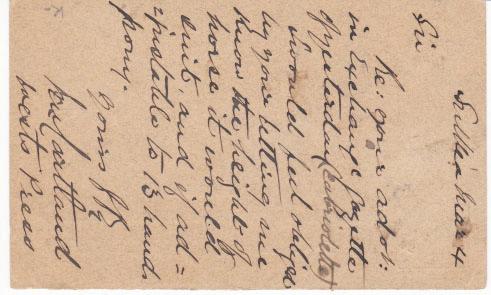 Mar 4
Sir
Re: your advt:
in Exchange Gazette
of yesterday (cabriolette)
I would feel oblige
by your letting me
know the height of
horse it would
suit, and if ad=
=justable to 13 hands
pony.
Yours &c